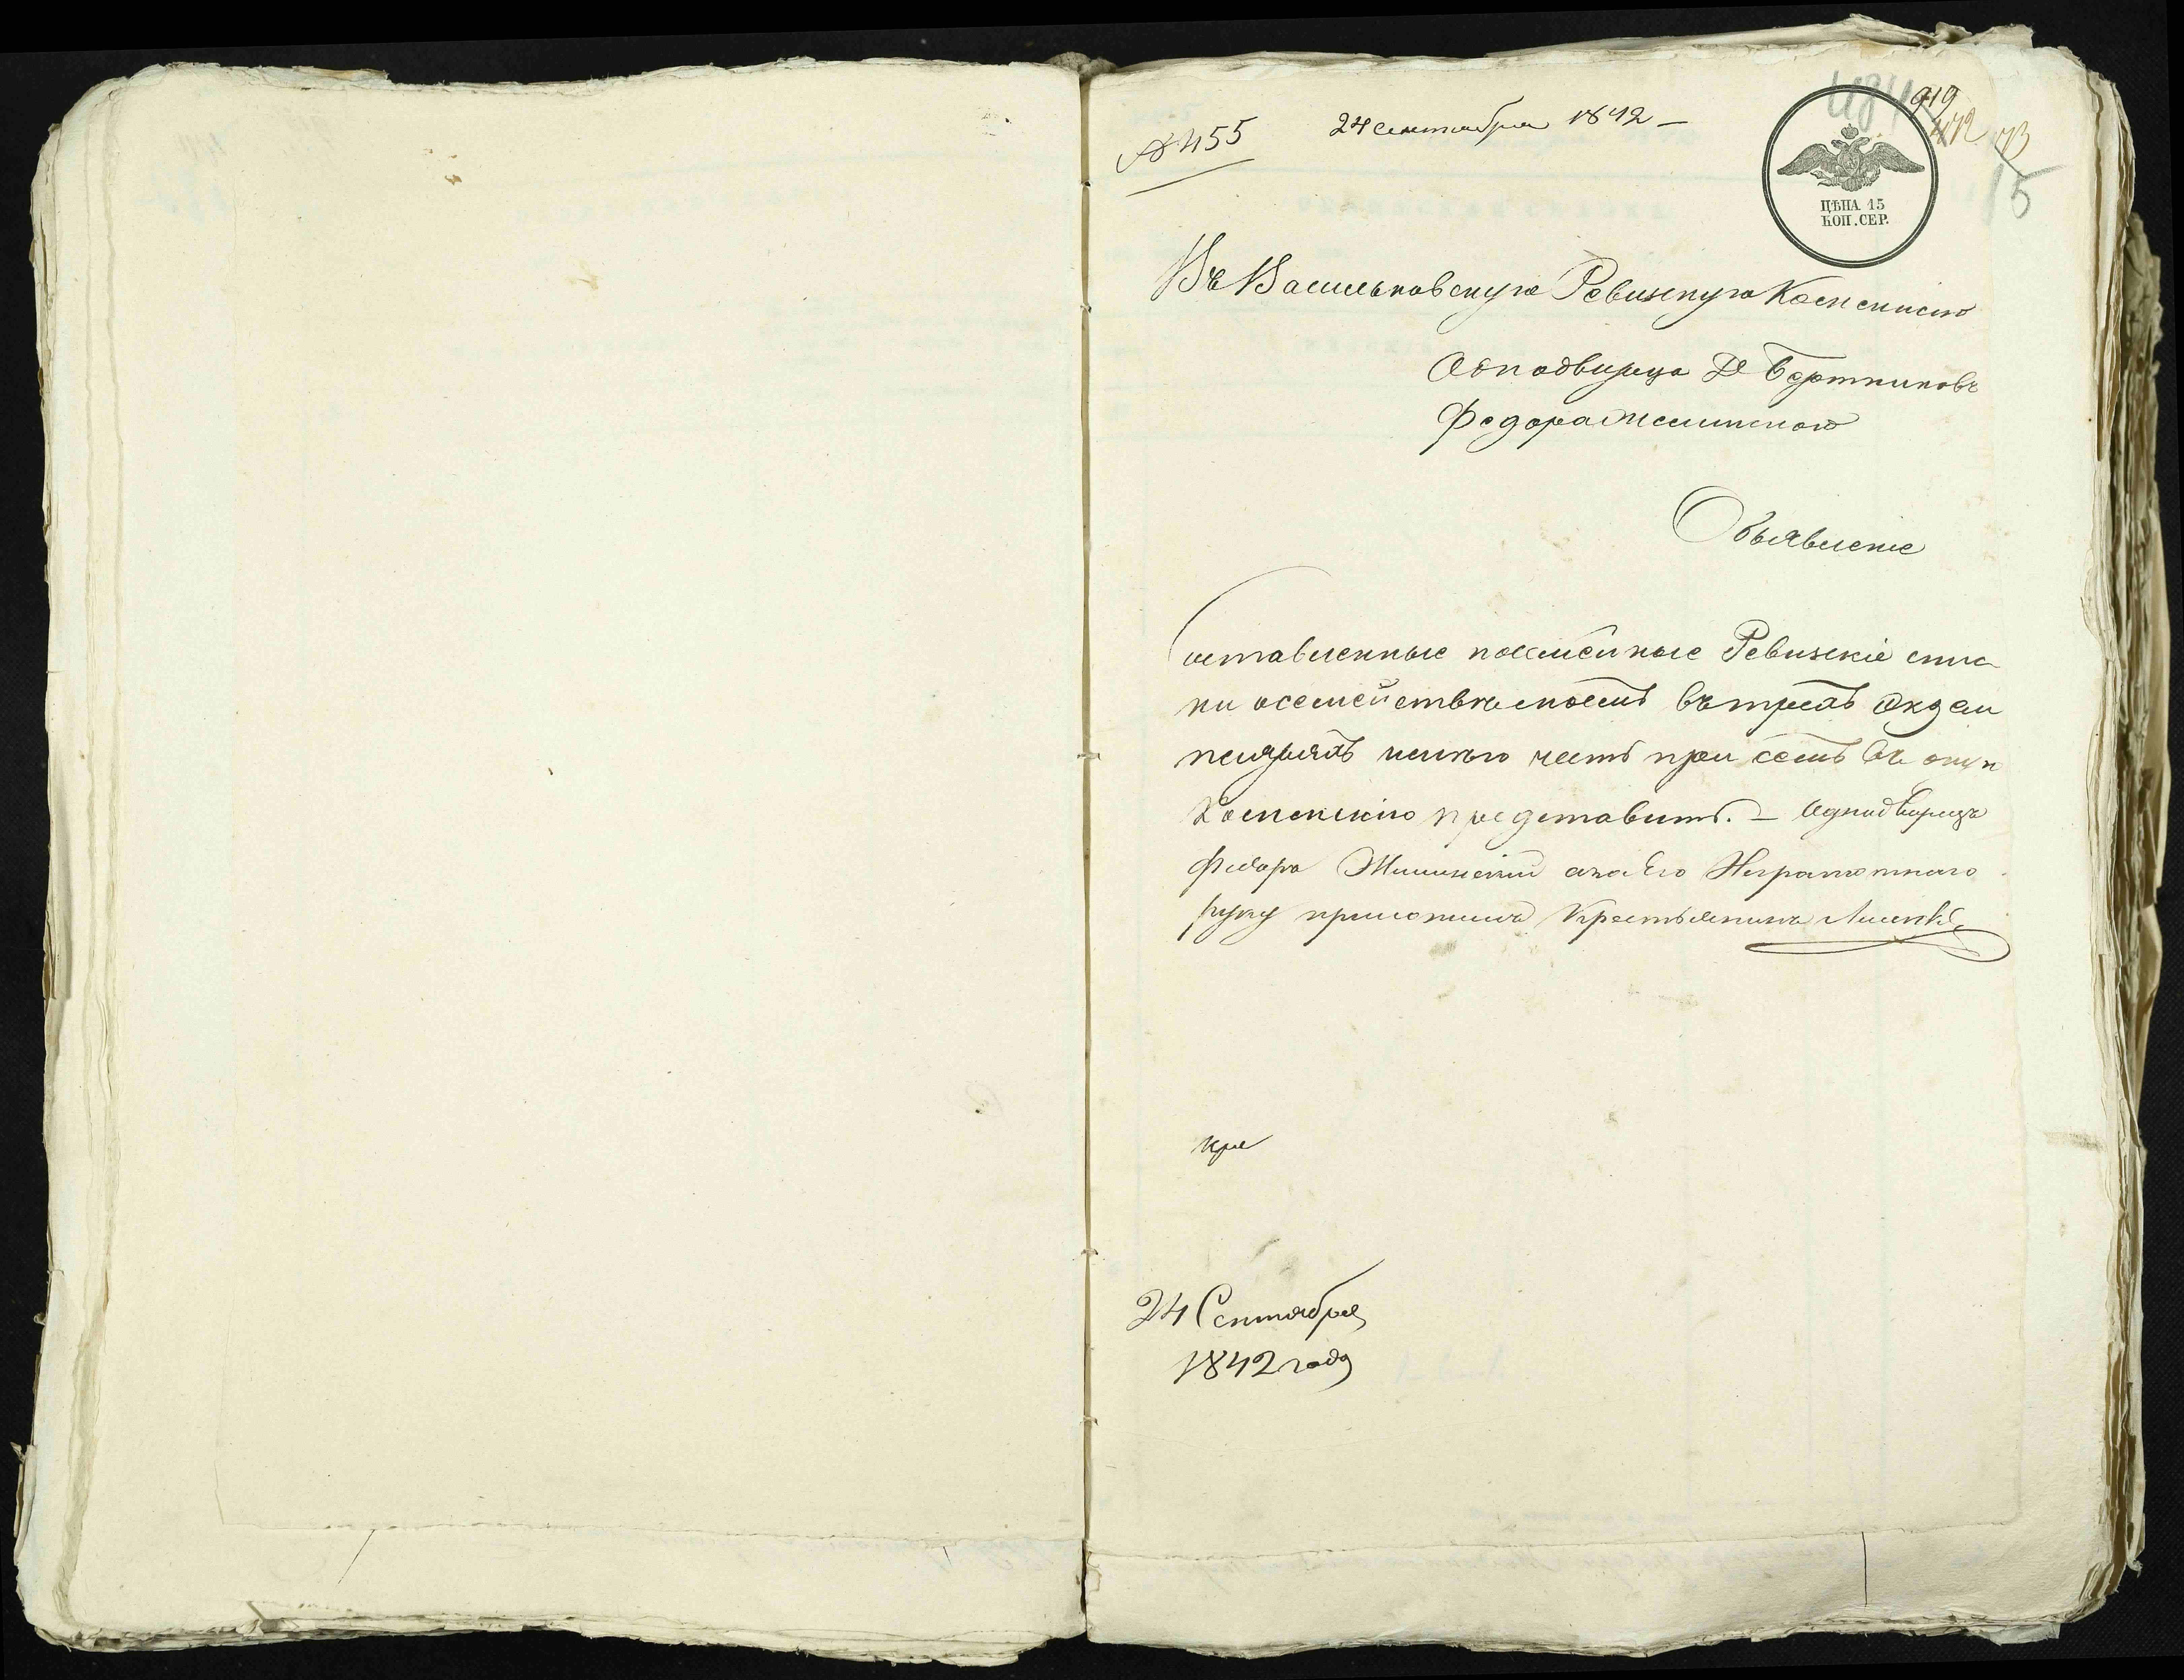 № 455 24 сентября 1842 –
919
472 473
15
ЦѢНА 15
КОП. СЕР.
Въ Васильковскую Ревизкую Коммисию
Однодворца Д. Бортниковъ
Федора Жилинского
Объявленіе
Составленные посемейные Ревизскіе спис
ки о семействѣ моемъ въ трехъ Экзем
плярахъ имѣю честь при семъ въ оную
Коммисію представить. – Однодворецъ
Федоръ Жилинскій а за Его Неграмотнаго
руку приложилъ Крестьянинъ
при
24 Сентября
1842 года